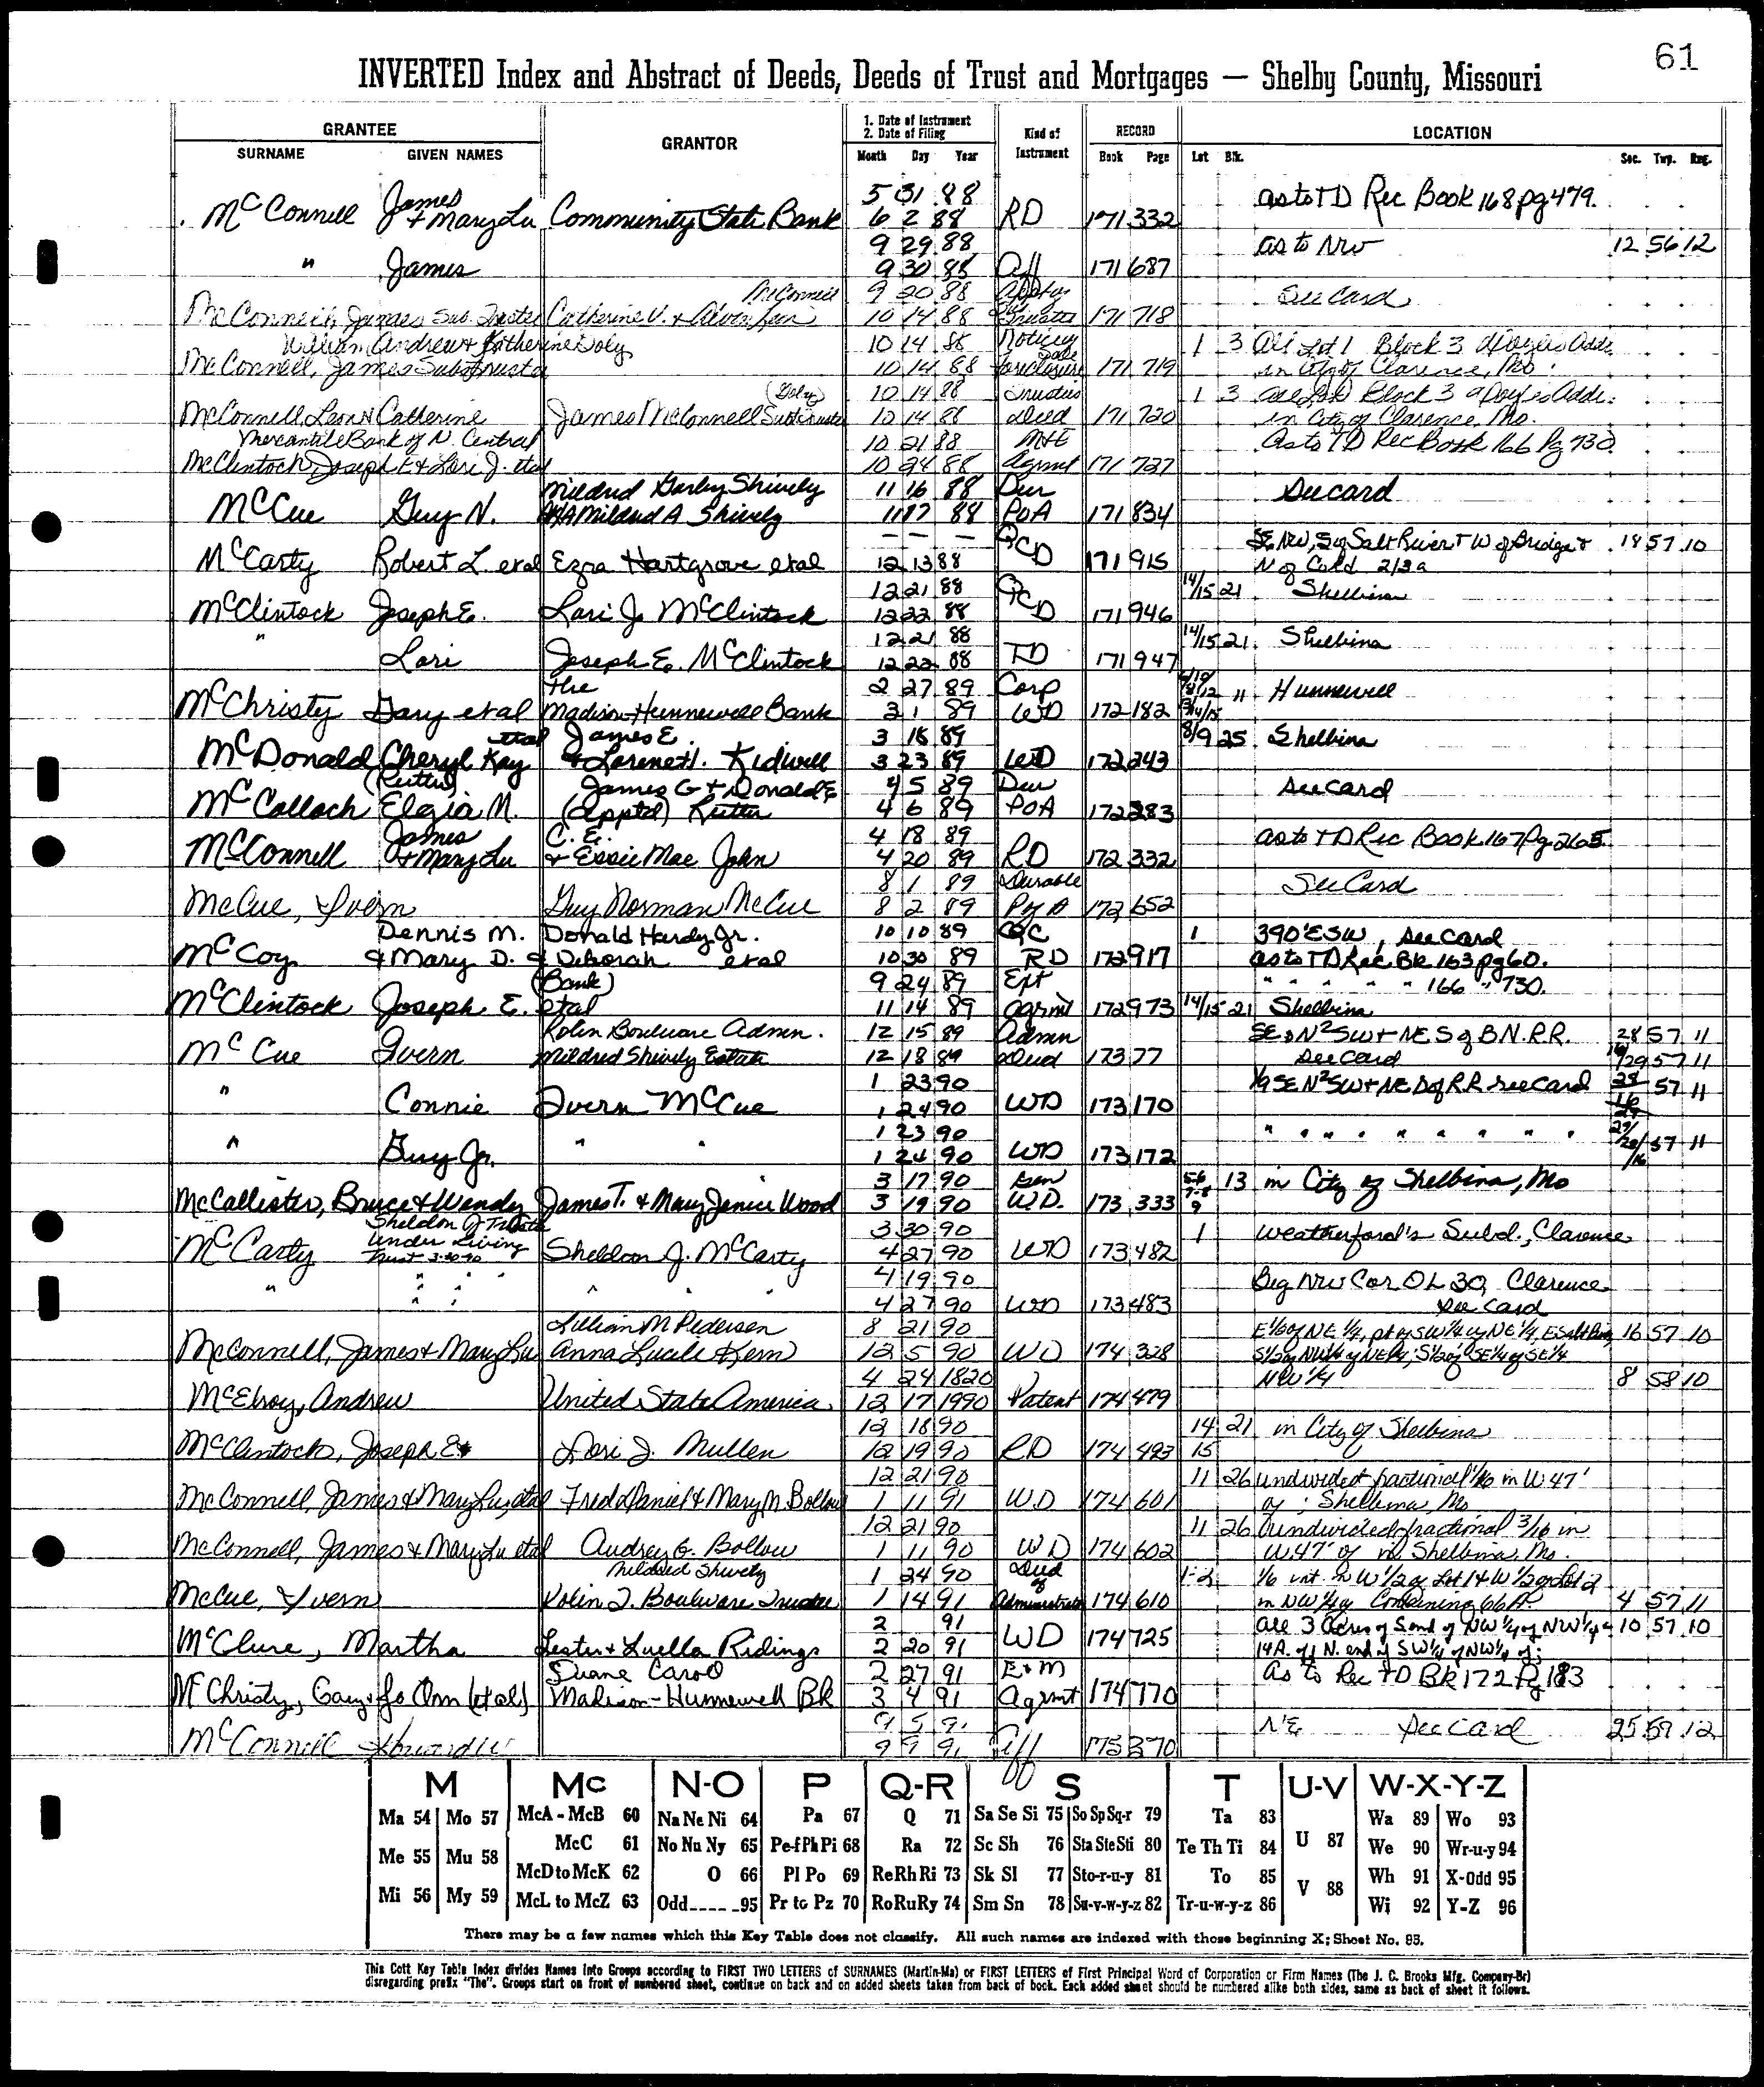 61
INVERTED Index and Abstract of Deeds, Deeds of Trust and Mortgages — Shelby County, Missouri
GRANTEE
SURNAME GIVEN NAMES
GRANTOR
1. Date of Instrument
2. Date of Filing
Month Day Year
Kind of Instrument
RECORD
Book Page
LOCATION
Lot Blk. Sec. Twp. Rng.
James 5 31 88 as to TD Rec Book 168 pg 479.
McConnell + Mary Lu Community State Bank 6 2 88 RD 171 332
9 29 88 as to NW 12 56 12
" James 9 30 88 Aff 171 687
McConnell 9 20 88 See Card
McConnell, James Sub. Trustee Catherine V. + 10 14 88 Trustee 171 718
William Andrew + Katherine Doly 10 14 88 Notice of 1 3 All Lot 1 Block 3 Adde.
McConnell, James Sub Trustee 10 14 88 foreclosure sale 171 719 in City of Clarence, Mo.
(Doly) 10 14 88 Trustees 1 3 Block 3 Adde.
McConnell, Leon + Catherine James McConnell Sub Trustee 10 14 88 Deed 171 720 in City of Clarence, Mo.
Mercantile Bank of N. Central 10 21 88 M+E As to TD Rec Book 166 Pg 730.
McClintock, Joseph E + Lori J. etal 10 24 88 Agrmt 171 727
Mildred Garley Shively 11 16 88 Dur See card
McCue Guy N. AKA Mildred A Shively 11 17 88 PoA 171 834
— — — QCD SE NW, S of Salt River + W of Bridge + 18 57 10
McCarty Robert L. etal Ezra Hartgrove etal 12 13 88 171 915 N of Co Rd 2/3 a
12 21 88 QCD 14/15 21 Shelbina
McClintock Joseph E. Lori J. McClintock 12 22 88 171 946
" 12 21 88 14/15 21 Shelbina
Lori Joseph E. McClintock 12 22 88 TD 171 947
The 2 27 89 Corp 11 Hunnewell
McChristy Gary etal Madison-Hunnewell Bank 3 1 89 WD 172 182
etal James E. 3 18 89 8/9 25 Shelbina
McDonald Cheryl Kay + Lorene H. Kidwell 3 23 89 WD 172 243
(Rutter) James G + Donald E 4 5 89 Dur See card
McColloch Elgia M. (apptd) Rutter 4 6 89 PoA 172 283
James C. E. 4 18 89 as to TD Rec Book 167 Pg 265.
McConnell + Mary Lu + Essie Mae John 4 20 89 RD 172 332
8 1 89 Durable See Card
McCue, Ivern Guy Norman McCue 8 2 89 P of A 172 652
Dennis M. Donald Hardy Jr. 10 10 89 1 390' ESW, see card
McCoy + Mary D. + Deborah etal 10 30 89 RD 172 917 as to TD Rec Bk 163 pg 60.
(Bank) 9 24 89 Ext " " " " " 166 " 730.
McClintock Joseph E. etal 11 14 89 agrmt 172 973 14/15 21 Shelbina
Kolin Boulware Admn. 12 15 89 Admn SE + N²SW + NE S of B.N.R.R. 28 57 11
McCue Ivern Mildred Shively Estate 12 18 89 Deed 173 77 See Card 16/29 57 11
1 23 90 1/9 SE N²SW + NE S of RR see card 57 11
" Connie Ivern McCue 1 24 90 WD 173 170
1 23 90 " " " " " " " " 57 11
" Guy Jr. " " 1 24 90 WD 173 172
3 17 90 Gen 5-6 7-8 9 13 in City of Shelbina, Mo
McCallister, Bruce + Wendy James T. + Mary Janice Wood 3 19 90 W.D. 173 333
Sheldon J Trustee 3 30 90 1 Weatherford's Subd., Clarence
McCarty Under Living Trust 3-30-90 Sheldon J. McCarty 4 27 90 WD 173 482
" " " " " " 4 19 90 Beg NW Cor OL 30, Clarence
4 27 90 WD 173 483 See Card
Lillian M Pedersen 8 21 90 E 1/2 of NE 1/4, pt of SW 1/4 of NE 1/4, 16 57 10
McConnell, James + Mary Lu Anna Lucile Kern 12 5 90 WD 174 328 S 1/2 of NW 1/4 of NE 1/4; S 1/2 of SE 1/4 of SE 1/4
4 24 1820 NW 1/4 8 58 10
McElroy, Andrew United State America 12 17 1990 Patent 174 479
12 18 90 14 21 in City of Shelbina
McClintock, Joseph E Lori J. Mullen 12 19 90 RD 174 493 15
12 21 90 11 26 undivided fractional 1/16 in W 47'
McConnell, James + Mary Lu, etal Fred Daniel + Mary M. Bollow 1 11 91 WD 174 601 of ; Shelbina, Mo
12 21 90 11 26 undivided fractional 3/16 in
McConnell, James + Mary Lu etal Audrey G. Bollow 1 11 90 WD 174 602 W 47' of in Shelbina, Mo.
Mildred Shively 1 24 90 Deed of 1-2 1/6 int. in W 1/2 of Lot 1 + W 1/2 of Lot 2
McCue, Ivern Kolin T. Boulware Trustee 1 14 91 Administrator 174 610 in NW 1/4 Containing 66 A. 4 57 11
2 91 all 3 Acres of S end of NW 1/4 of NW 1/4 + 10 57 10
McClure, Martha Lester + Luella Ridings 2 20 91 WD 174 725 14 A. of N. end of SW 1/4 of NW 1/4 of;
Duane Carol 2 27 91 E+M As to Rec TD BK 172 Pg 183
McChristy, Gary + Jo Ann (etal) Madison-Hunnewell Bk 3 4 91 Agrmt 174 770
9 5 91 NE See Card 25 59 12
McConnell Howard W 9 9 91 Aff 175 370
M Mc N-O P Q-R S T U-V W-X-Y-Z
Ma 54 Mo 57 McA - McB 60 Na Ne Ni 64 Pa 67 Q 71 Sa Se Si 75 So Sp Sq-r 79 Ta 83 U 87 Wa 89 Wo 93
Me 55 Mu 58 McC 61 No Nu Ny 65 Pe-f Ph Pi 68 Ra 72 Sc Sh 76 Sta Ste Sti 80 Te Th Ti 84 We 90 Wr-u-y 94
McD to McK 62 O 66 Pl Po 69 Re Rh Ri 73 Sk Sl 77 Sto-r-u-y 81 To 85 V 88 Wh 91 X-Odd 95
Mi 56 My 59 McL to McZ 63 Odd 95 Pr to Pz 70 Ro Ru Ry 74 Sm Sn 78 Su-v-w-y-z 82 Tr-u-w-y-z 86 Wi 92 Y-Z 96
There may be a few names which this Key Table does not classify. All such names are indexed with those beginning X; Sheet No. 95.
This Cott Key Table Index divides Names into Groups according to FIRST TWO LETTERS of SURNAMES (Martin-Ma) or FIRST LETTERS of First Principal Word of Corporation or Firm Names (The J. C. Brooks Mfg. Company-Br)
disregarding prefix "The". Groups start on front of numbered sheet, continue on back and on added sheets taken from back of book. Each added sheet should be numbered alike both sides, same as back of sheet it follows.